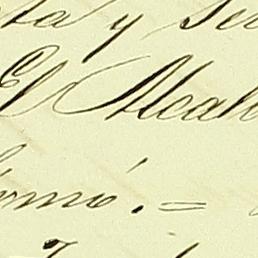 ta y Se
El Alcal
rmó. =